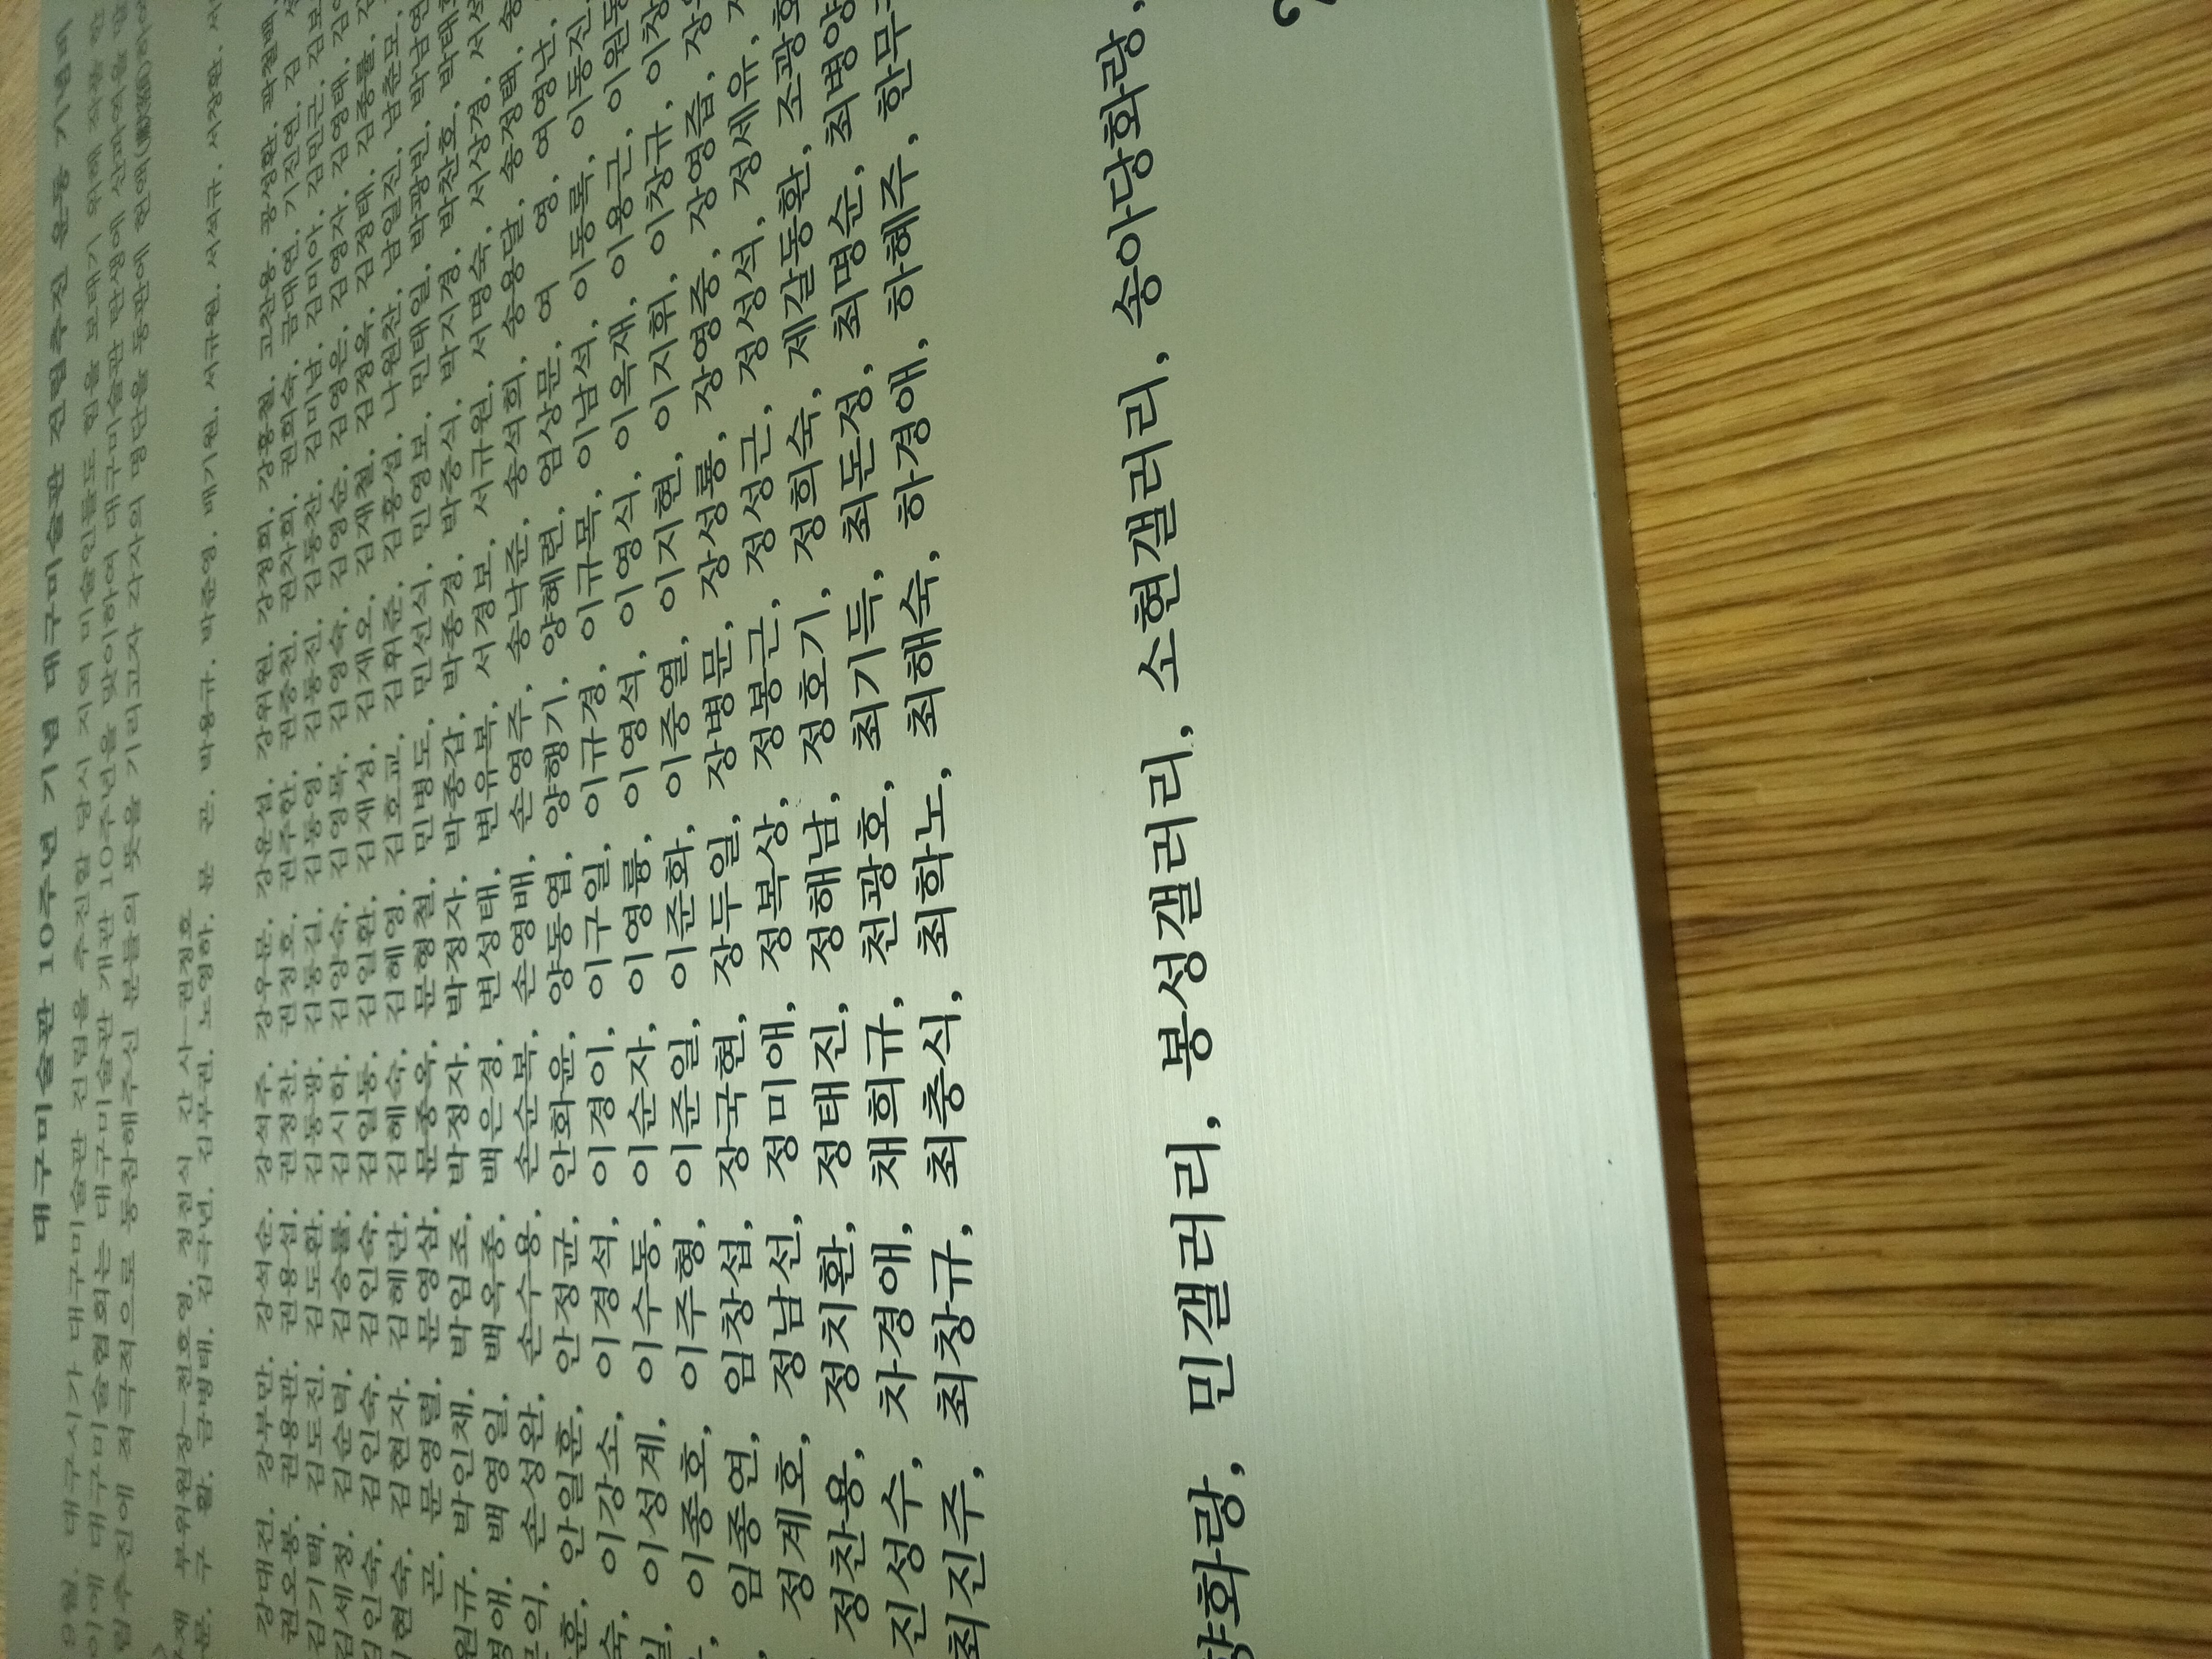 대구미술관 10주년 기념 대구미술관 건립추진 운동 기념비
월, 대구시가 대구미술관 건립을 추진할 당시 지역 미술인들도 힘을 보태기 위해
이에 대구미술협회는 대구미술관 개관 10주년을 맞이하여 대구미술관 탄생에 산파역을
립추진에 적극적으로 동참해주신 분들의 뜻을 기리고자 각자의 명단을 동판에
부위원장-전호영, 정전식 간 사-권정호
구 활, 금병태, 김극년, 김부권, 노영하, 문 곤, 박용규, 박준영, 배기원, 서규원, 서석규, 서장환,
강대건, 강부만, 강석순, 강석주, 강우문, 강운섭, 강위원, 강정희, 강홍철, 고찬용, 공성환, 곽철백,
권오봉, 권용관, 권용섭, 권정찬, 권정호, 권주한, 권중천, 권자희, 권희숙, 금대연, 기진연, 김
김기택, 김도진, 김도환, 김동광, 김동길, 김동영, 김동진, 김동찬, 김미남, 김미아, 김민근,
김세정, 김순덕, 김승룡, 김시하, 김양숙, 김영목, 김영숙, 김영순, 김영은, 김영자, 김영태,
김인숙, 김인숙, 김인숙, 김일동, 김일환, 김재성, 김재오, 김재철, 김정옥, 김정태, 김종률,
현숙, 김현자, 김혜란, 김혜숙, 김혜영, 김호교, 김휘준, 김흥섭, 나원찬, 남일진, 남춘모,
곤, 문영렬, 문영삼, 문종옥, 문형철, 민병도, 민선식, 민영보, 민태일, 박광빈, 박남연
원규, 박인채, 박임조, 박정자, 박정자, 박종갑, 박종경, 박중식, 박지경, 박찬호, 박태
영애, 백영일, 백옥종, 백은경, 변성태, 변유복, 서경보, 서규원, 서명숙, 서상경,
문의, 손성완, 손수용, 손순복, 손영배, 손영주, 송낙준, 송석희, 송용달, 송정택, 송
훈, 안일훈, 안정균, 안화윤, 양동엽, 양행기, 양혜련, 엄상문, 여 영, 여영난,
숙, 이강소, 이경석, 이경이, 이구일, 이규경, 이규목, 이남석, 이동록, 이동진,
일, 이성계, 이수동, 이순자, 이영륭, 이영석, 이영식, 이옥재, 이용근, 이원동
이종호, 이주형, 이준일, 이준화, 이중열, 이지현, 이지휘, 이창규, 이창
임종연, 임창섭, 장국현, 장두일, 장병문, 장성룡, 장영중, 장영즙, 장
정계호, 정남선, 정미애, 정복상, 정봉근, 정성근, 정성석, 정세유,
정찬용, 정치환, 정태진, 정해남, 정호기, 정희숙, 제갈동환, 조광호
진성수, 차경애, 채희규, 천광호, 최기득, 최돈정, 최명순, 최병양
최진주, 최창규, 최충식, 최학노, 최해숙, 하경애, 하혜주, 한무
향화랑, 민갤러리, 봉성갤러리, 소현갤러리, 송아당화랑,